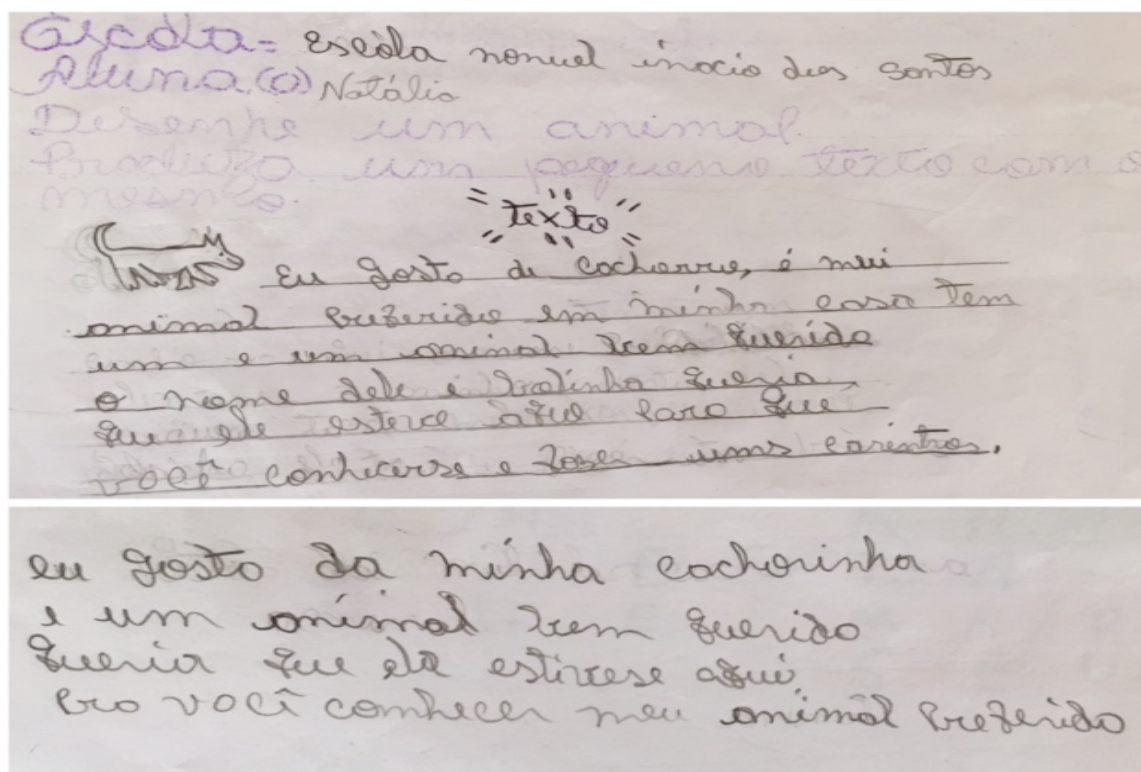 Escola= Escola nonuel inocio dos santos
Aluna(o) Natália
Desenhe um animal.
Produza um pequeno texto com o
mesmo.
texto
Eu gosto de cachorro, é meu
animal preferido em minha casa tem
um e um animal bem querido
o nome dele é bolinha queria
que ele esterce aque para que
você conhecerse e fosse ums carinhos.
eu gosto da minha cachorinha
e um animal bem querido
queria que ela estivese aqui
pro você conhecer meu animal preferido